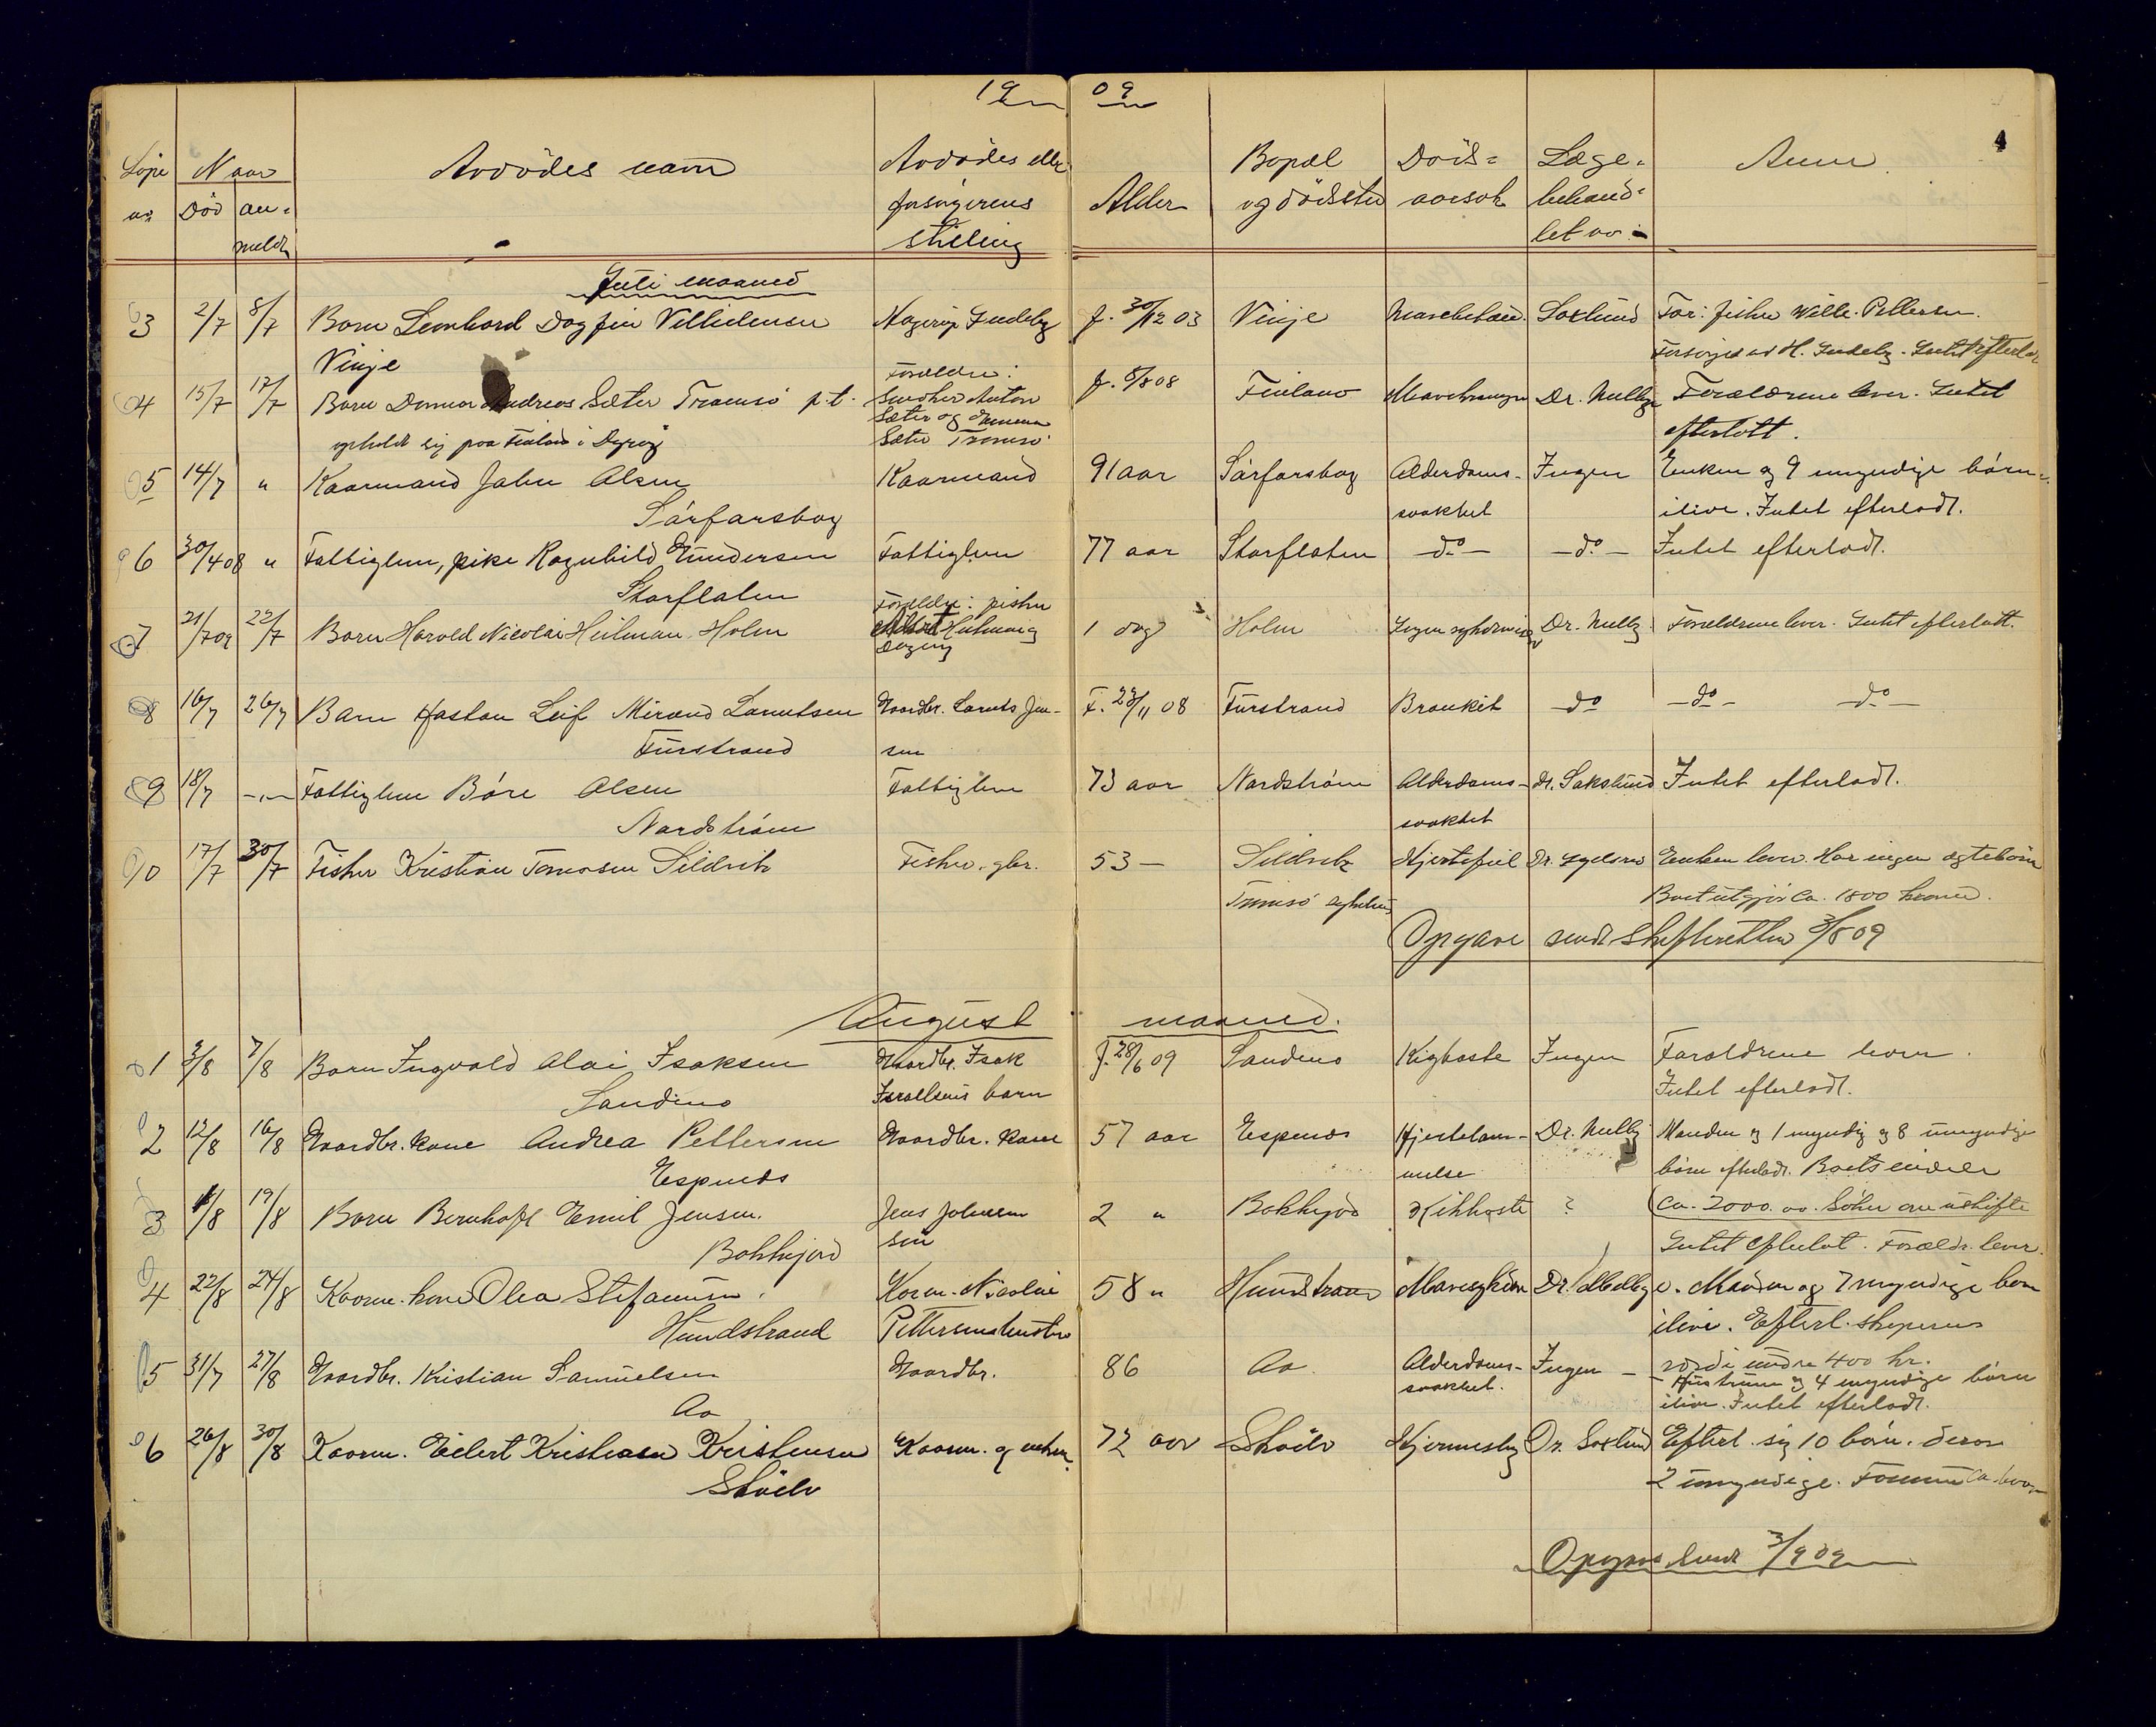 19 09
4
Løpe Naar Avdødes navn Avdødes eller Alder Bopæl Døds= Læge= Anm.
nr. Død an= forsørgerens og dødssted aarsak behand=
meldt stilling let av:
Juli maaned
3 2/7 8/7 Barn Leonhard Dagfin Vilhelmsen Hagerup f. 30/12 03 Vinje Saxlund Far: fisker Pettersen.
Vinje Forsørget av H. Intet efterlat
4 15/7 17/7 Barn Andreas Sæter Tromsø p.t. Forældre: f. 5/8 08 Finland Dr. Forældrene lever. Intet
opholdt sig paa Finland i Dyrøy Anton Sæter og Sæter Tromsø efterlatt.
5 14/7 " Kaarmand Johan Olsen Kaarmand 91 aar Sørfarsbog Alderdoms- Ingen Enken og 9 myndige børn
Sørfarsbog svakhet ilive. Intet efterladt.
6 30/4 08 " Fattiglem, pike Ragnhild Gundersen Fattiglem 77 aar Storflaten —do— —do— Intet efterladt.
Storflaten
7 21/7 09 22/7 Barn Harold Nicolai Heilman Holm Forældre: fisker 1 dag Holm Ingen Dr. Forældrene lever. Intet efterlatt.
8 16/7 26/7 Barn Hastan Leif Lorntsen Gaardbr. Lornts Jen- F. 23/11 08 Furstrand Bronkit —do —do— —do—
Furstrand sen
9 18/7 —"— Fattiglem Olsen Fattiglem 73 aar Nordstrøm Alderdoms- Dr. Sakslund Intet efterladt.
Nordstrøm svakhet
10 17/7 30/7 Fisker Kristian Tomasen Sildvik Fisker, gbr. 53 — Sildvik Hjertefeil Dr. Enken lever. Har ingen egtebørn
Tromsø sykehus Boet utgjør ca. 1800 kroner.
Opgave sendt skifteretten 3/8 09
August maaned.
1 3/8 7/8 Barn Ingvald Olai Isaksen Gaardbr. Isak f. 28/6 09 Sandmo Kighoste Ingen Forældrene lever.
Sandmo Israelsens barn Intet efterladt.
2 12/8 16/8 Gaardbr. kone Andrea Pettersen Gaardbr. kone 57 aar Espenes Hjertelam- Dr. Manden og 1 myndig og 8 umyndige
Espenes melse børn efterladt. Boets
3 1/8 19/8 Barn Bernhoff Emil Jensen. Jens Johnsen 2 " Bakkejord Kikhoste ? ca. 2000.00. Søker om uskifte
Bakkejord søn Intet efterlat. Foræld. lever.
4 22/8 24/8 Kaarm. kone Olea Stefansen. Kaarm. Nicolai 58 " Hundstrand Dr. Manden og 7 myndige børn
Hundstrand Pettersens hustru ilive. Efterl.
5 31/7 27/8 Gaardbr. Kristian Samuelsen Gaardbr. 86 Aa Alderdoms- Ingen — værdi under 400 kr.
Aa svakhet. — Hustruen og 4 myndige børn
ilive. Intet efterladt.
6 26/8 30/8 Kaarm. Eilert Kristiasen Kristensen Kaarm. og enkem. 72 aar Skøelv Dr. Saxlund Efterl. sig 10 børn. derav
Skøelv 2 umyndige. Formue ca.
Opgave sendt 3/9 09